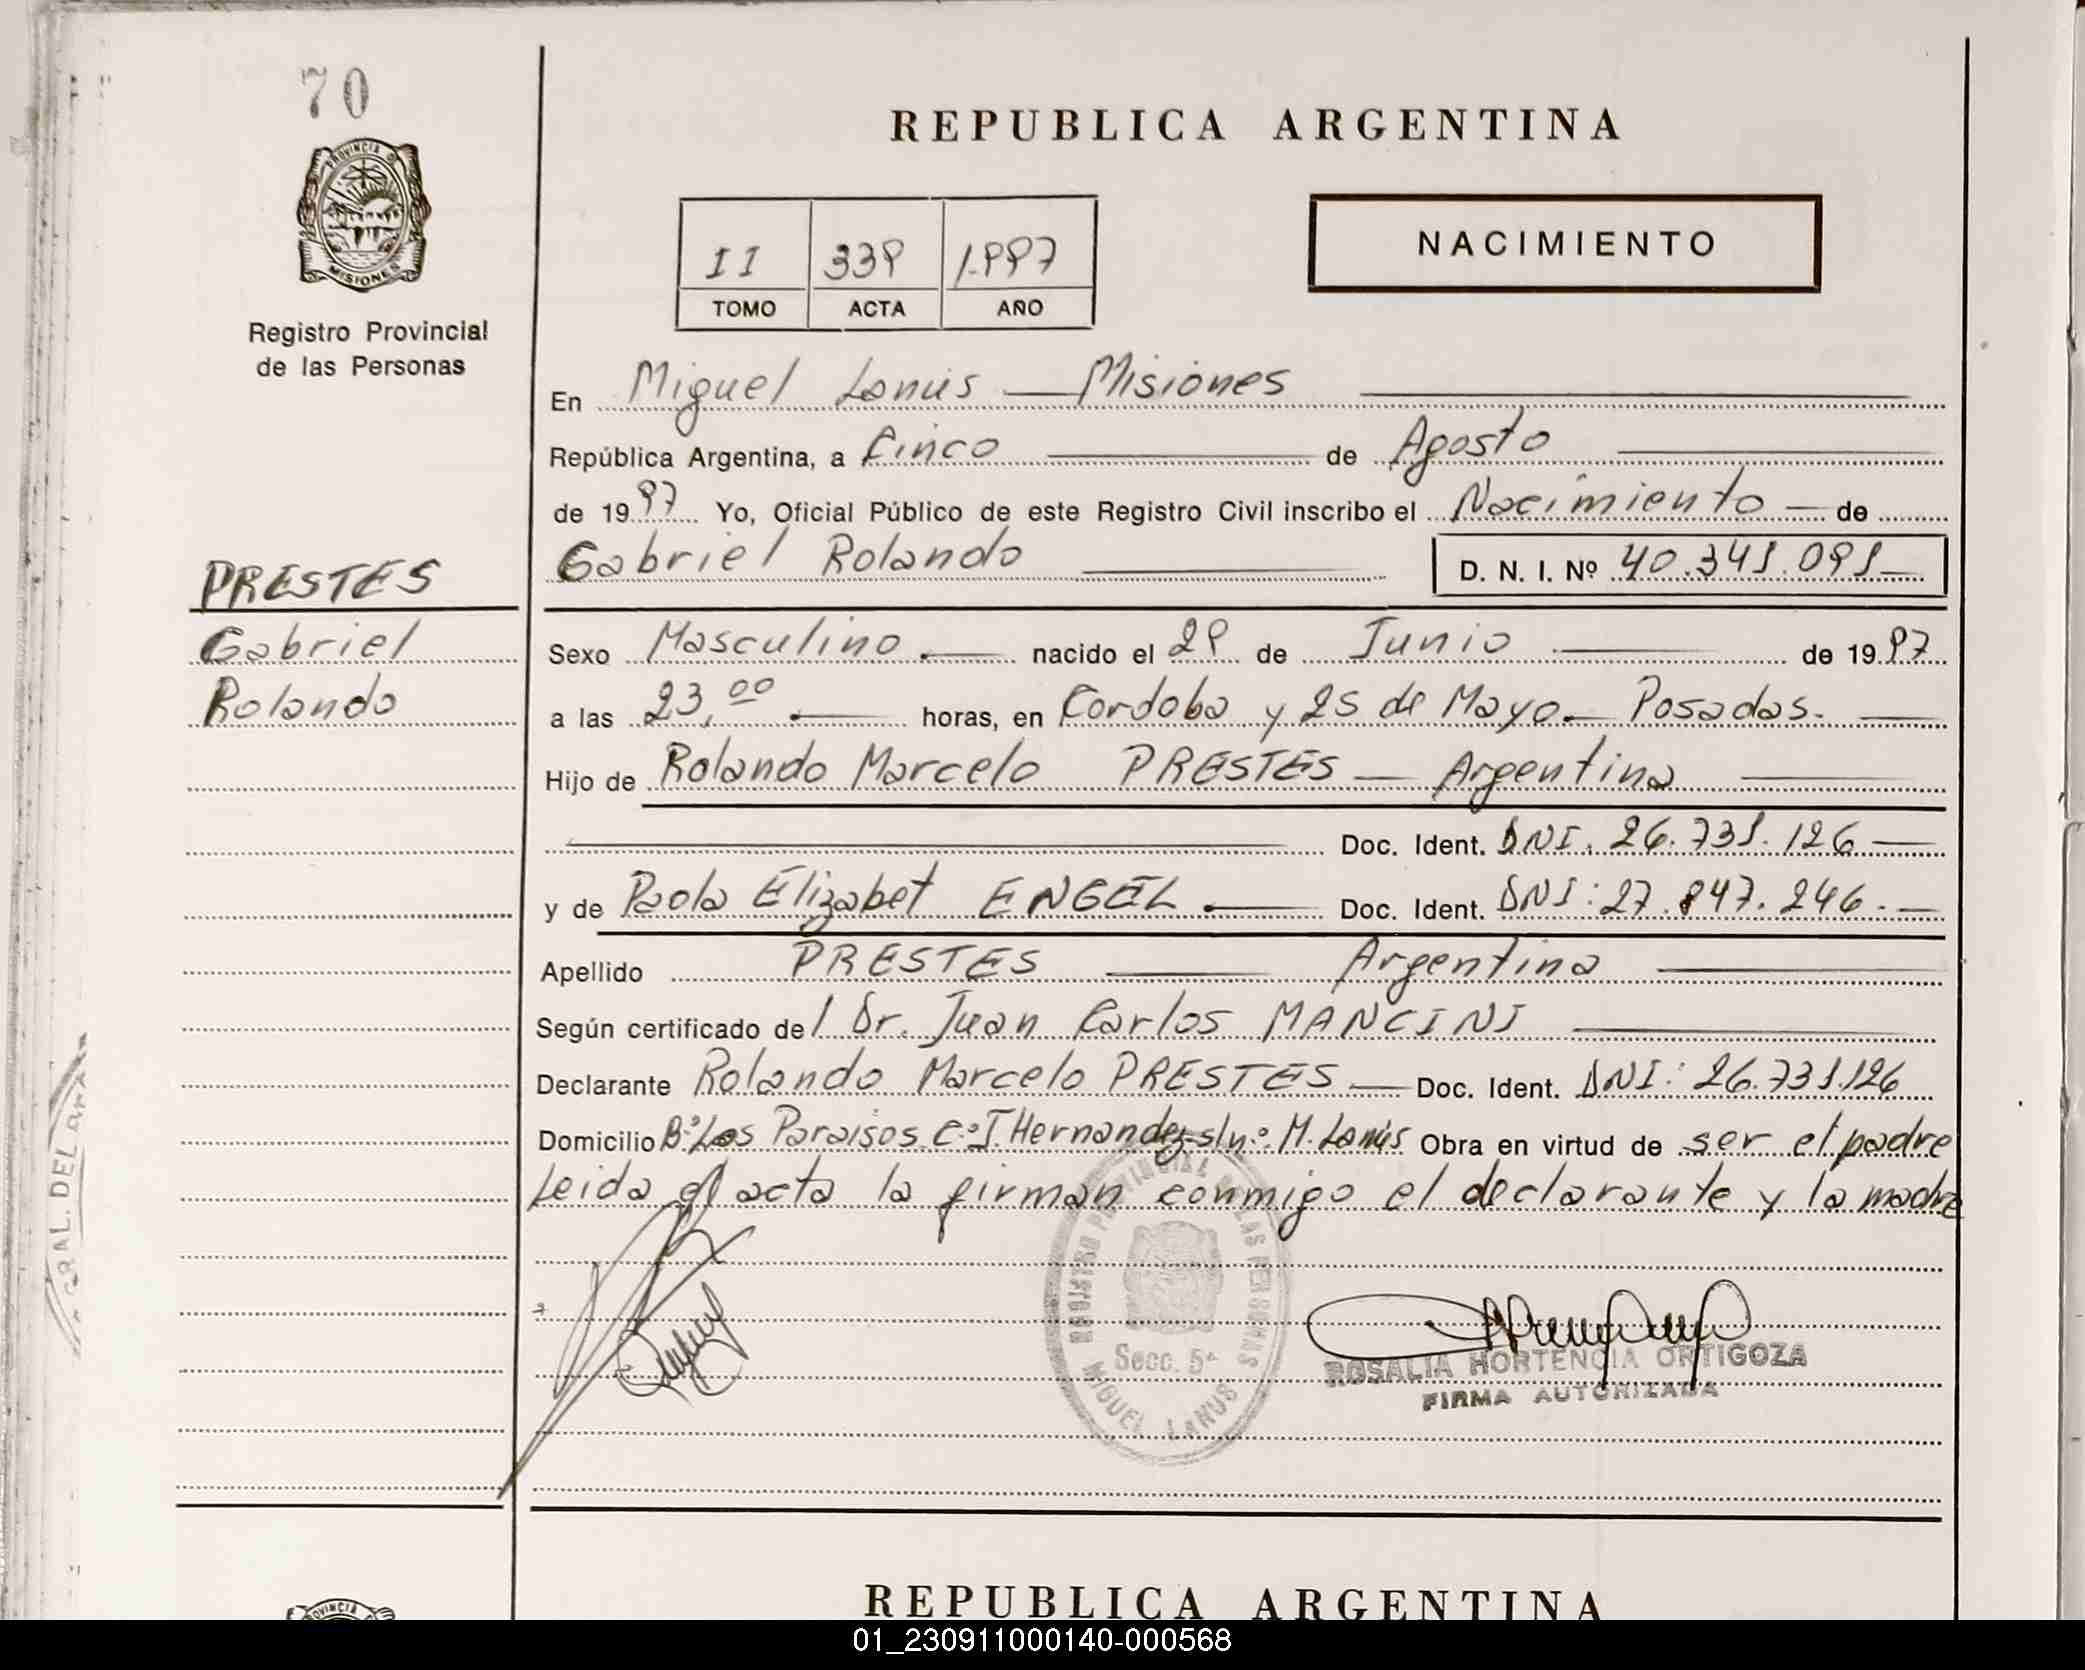 70
REPUBLICA ARGENTINA
PROVINCIA D
MISIONES
Registro Provincial
de las Personas
II 339 1.997
TOMO ACTA AÑO
NACIMIENTO
En Miguel Lanús — Misiones
República Argentina, a Cinco de Agosto
de 1997 Yo, Oficial Público de este Registro Civil inscribo el Nacimiento — de
Gabriel Rolando D. N. I. Nº 40.341.091
PRESTES
Gabriel
Rolando
Sexo Masculino nacido el 29 de Junio de 1997
a las 23,00 horas, en Cordoba y 25 de Mayo. Posadas.
Hijo de Rolando Marcelo PRESTES — Argentina
Doc. Ident. DNI. 26.731.126
y de Paola Elizabet ENGEL Doc. Ident. DNI: 27.847.246.
Apellido PRESTES Argentina
Según certificado del Dr. Juan Carlos MANCINI
Declarante Rolando Marcelo PRESTES — Doc. Ident. DNI: 26.731.126
Domicilio Bº: Los Paraisos C:º J. Hernandez s/n:º M. Lanús Obra en virtud de ser el padre
Leida el acta la firman conmigo el declarante y la madre
REGISTRO PROVINCIAL DE LAS PERSONAS
Secc. 5ª
MIGUEL LANUS
ROSALIA HORTENCIA ORTIGOZA
FIRMA AUTORIZADA
GRAL. DEL
PROVINCIA
REPUBLICA ARGENTINA
01_230911000140-000568